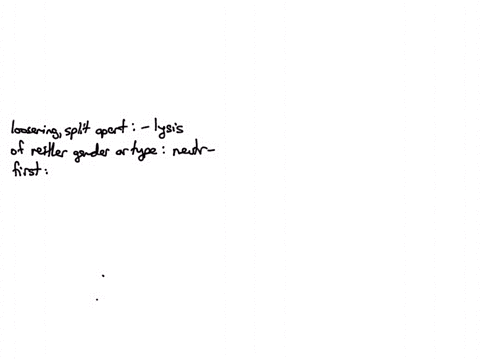 loosening, split apart : - lysis
of neither gender or type : neutr-
first :